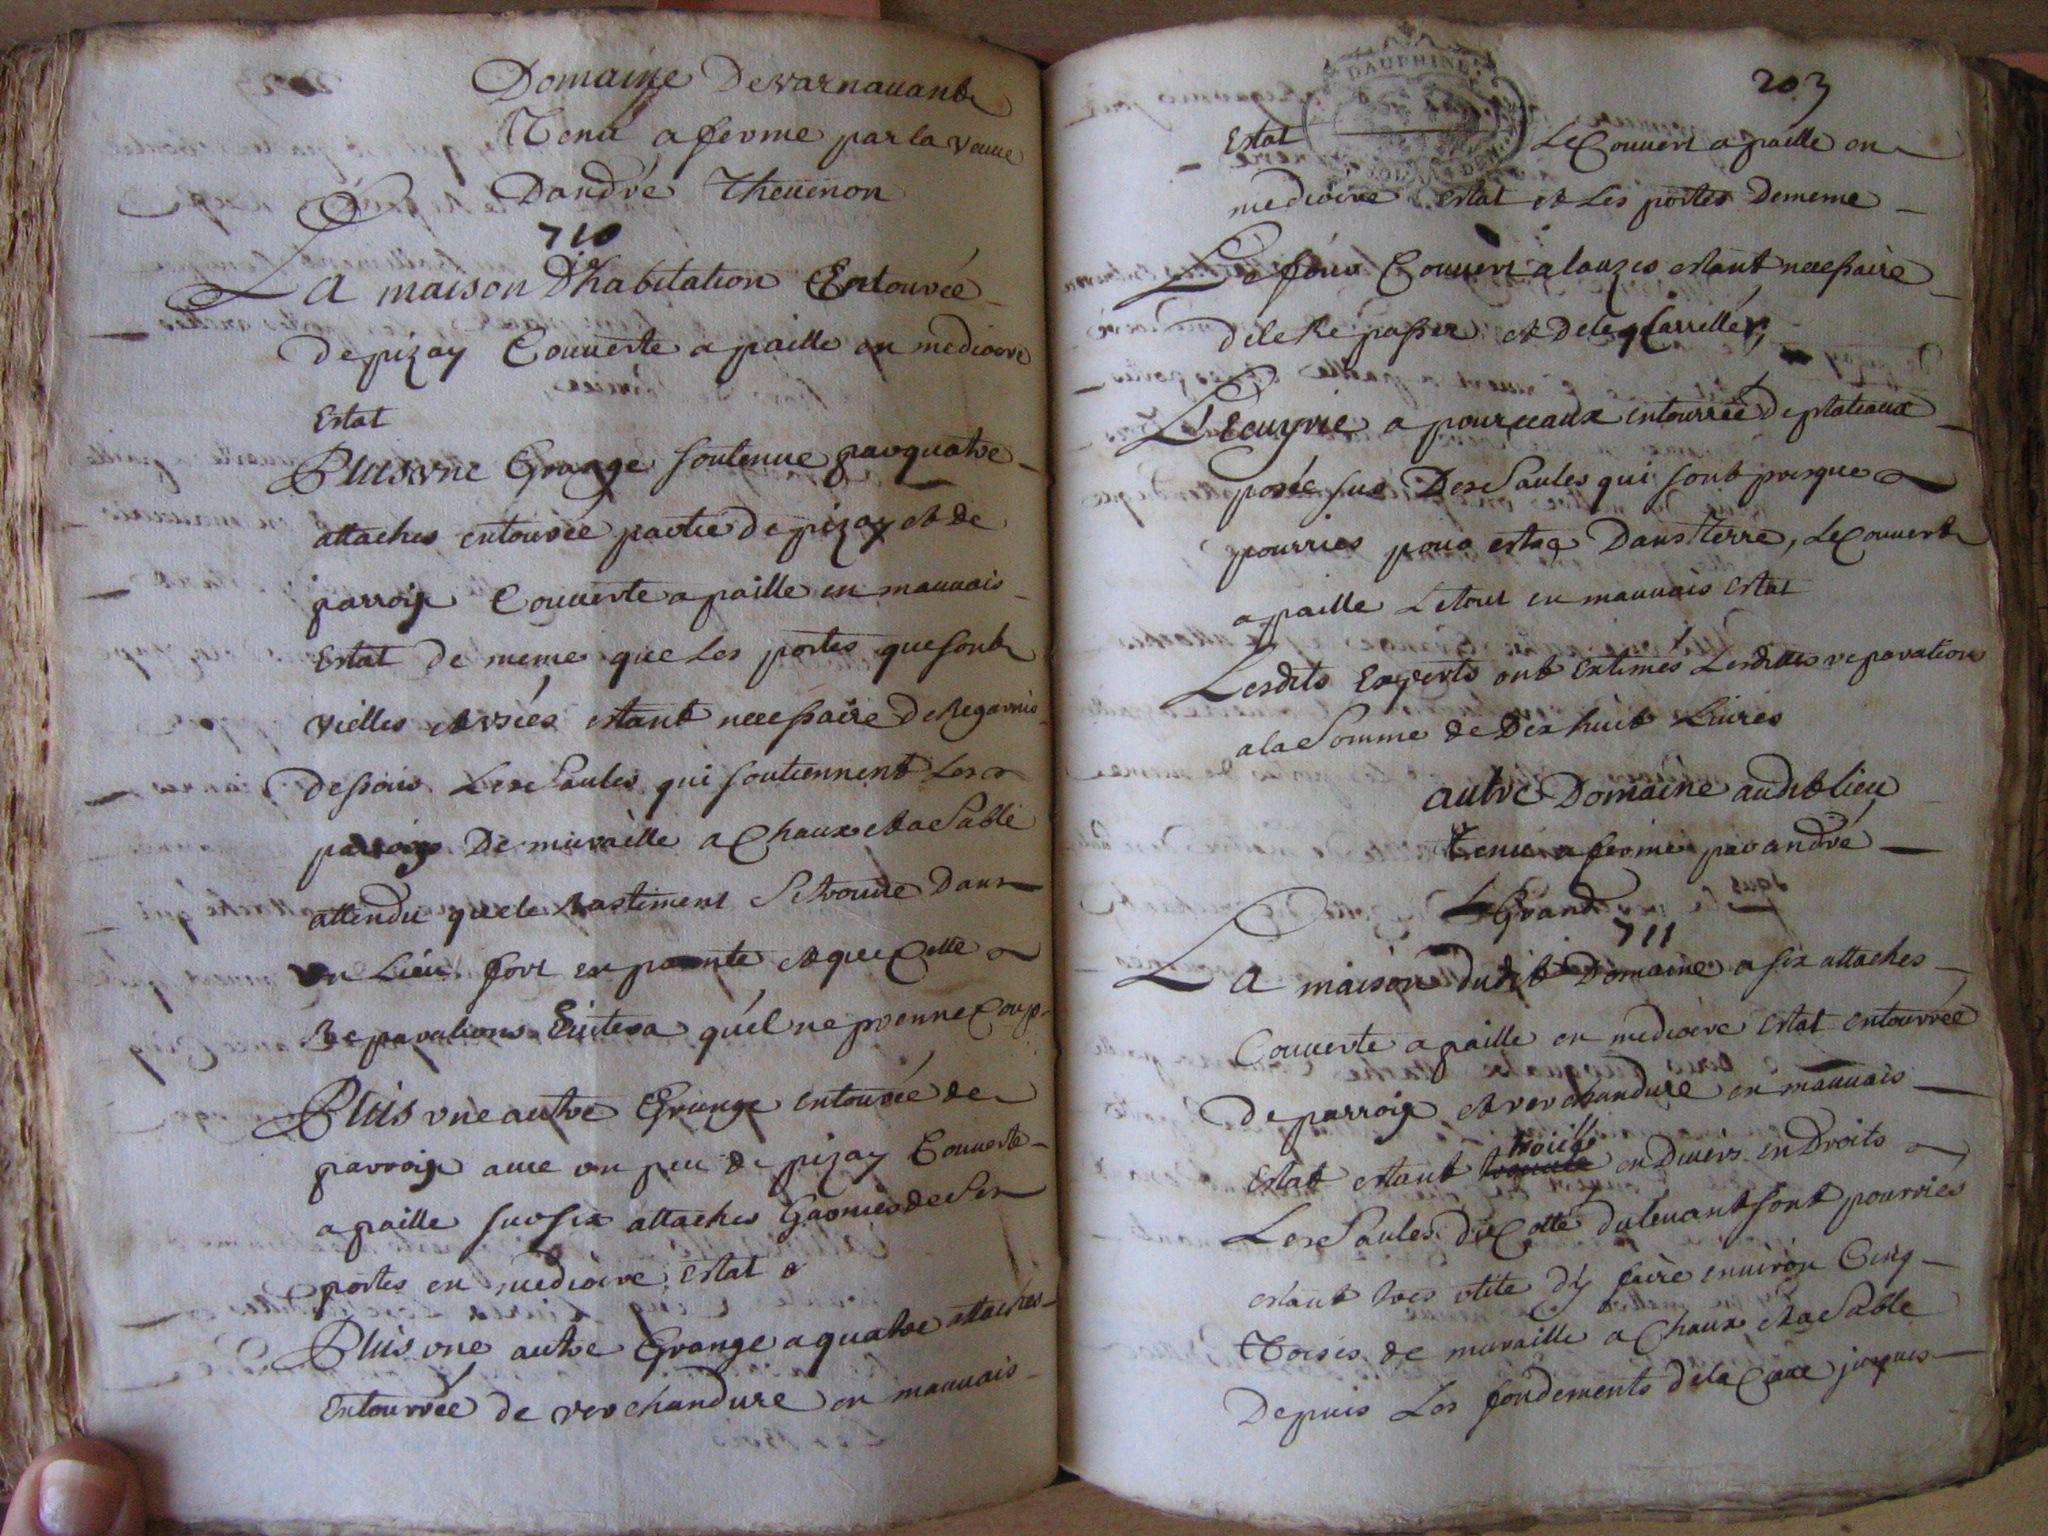 Domaine De varnauant
Tenu a ferme par la veuue
Dandré Theuenon
710
La maison D'habitation Entourée
de pizay Couuerte a paille en mediocre
Estat
Plus vne Grange soutenue par quatre
attaches entourée partie de pizay et de
parroix Couuerte a paille en mauuais
Estat de meme que les portes que sont
vielles et vsées estant necessaire de Regarnir
dessous Les Saules qui soutiennent Les
parroix De muraille a Chaux et a Sable
attendu que le Bastiment Se trouue Dans
vn Lieu fort en pante et que Cette
Reparations Euitera qu'el ne prenne Coup
Plus vne autre Grange entourée de
parroix auec vn peu de pizay Couuerte
a paille sur six attaches Garnies de Ses
portes en mediocre estat &
Plus vne autre Grange a quatre attaches
Entourrée de verchandure en mauuais
203
DAUPHINE
Estat Le Couuert a paille en
mediocre estat et Les portes De meme
Le four Couuert a lauzes estant necessaire
de le Repasser et De le Carreller
L'Ecuyrie a pourceaux entourrée De plateaux
posée sur Des Saules qui sont presque
pourries pour estre Dans terre, Le Couuert
a paille Le tout en mauuais Estat
Lesdits Experts ont Extimés Lesdittes reparations
a la Somme de Dix huit Liures
autre Domaine audit lieu
Tenu a ferme par andré
Le Grand
711
La maison dudit Domaine a six attaches
Couuerte a paille en mediocre Estat entourrée
De parroix et verchandure en mauuais
Estat estant troüée en Diuers enDroits
Les Saules du Cotté du leuant sont pourries
estant tres vtile d'y faire enuiron Cinq
Toises de muraille a Chaux et a Sable
Depuis Les fondements de la Caue jusques